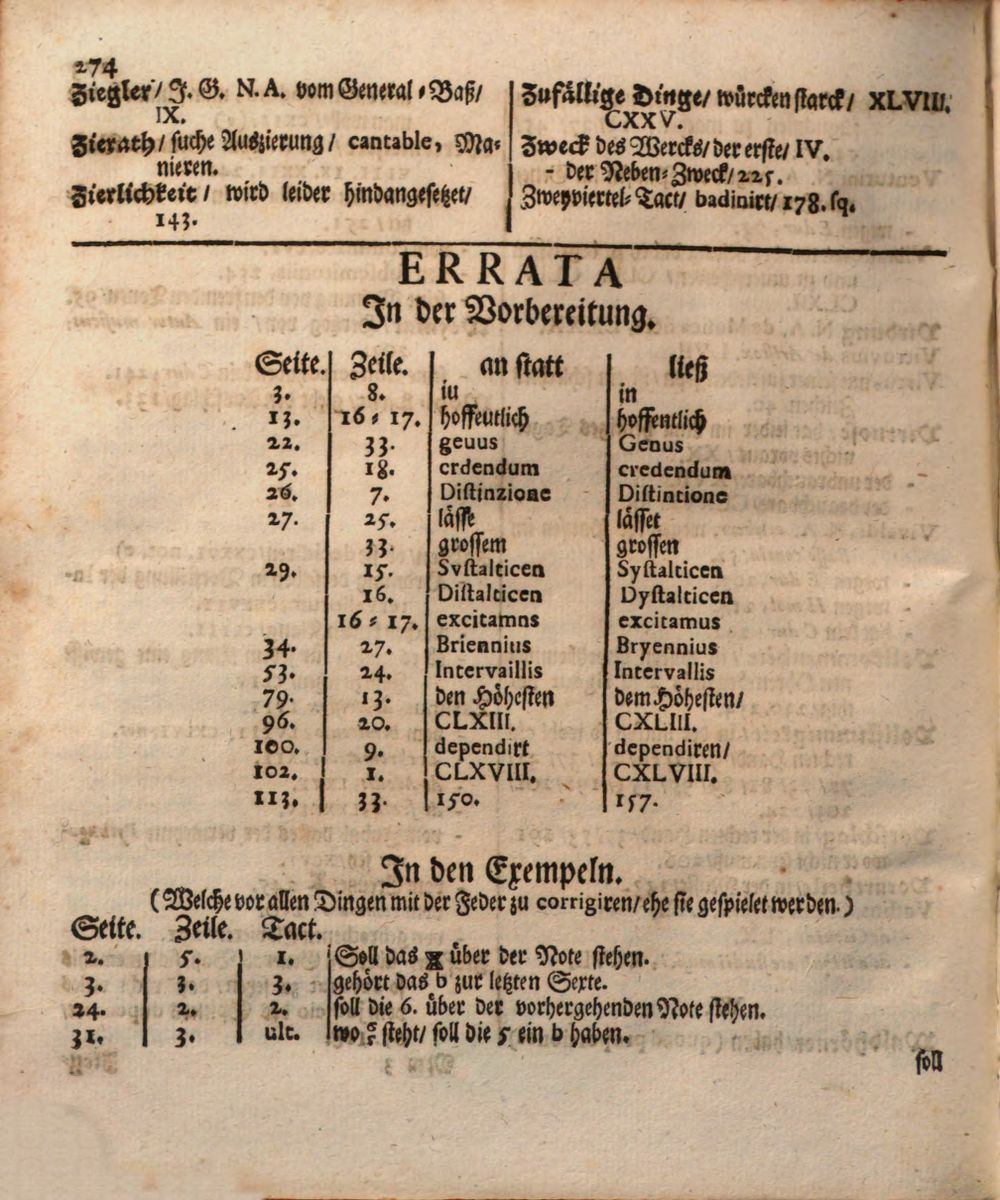 274
Ziegler/ J. G. N. A. vom General-Baß/
IX.
Zierath/ suche Auszierung/ cantable, Ma-
nieren.
Zierlichkeit/ wird leider hindangesetzet/
143.
Zufällige Dinge/ würcken starck/ XLVIII.
CXXV.
Zweck des Wercks/ der erste/ IV.
- der Neben-Zweck/ 225.
Zweyviertel-Tact/ badinirt/ 178. sq.
ERRATA
In der Vorbereitung.
Seite. Zeile. an statt ließ
3. 8. iu in
13. 16-17. hoffeutlich hoffentlich
22. 33. geuus Genus
25. 18. crdendum credendum
26. 7. Distinzione Distintione
27. 25. lässe lässet
33. grossem grossen
29. 15. Svstalticen Systalticen
16. Distalticen Dystalticen
16-17. excitamns excitamus
34. 27. Briennius Bryennius
53. 24. Intervaillis Intervallis
79. 13. den Höhesten dem Höhesten/
96. 20. CLXIII. CXLIII.
100. 9. dependirt dependiren/
102. 1. CLXVIII. CXLVIII.
113. 33. 150. 157.
In den Exempeln.
(Welche vor allen Dingen mit der Feder zu corrigiren/ ehe sie gespielet werden.)
Seite. Zeile. Tact.
2. 5. 1. Soll das über der Note stehen.
3. 3. 3. gehört das b zur letzten Sexte.
24. 2. 2. soll die 6. über der vorhergehenden Note stehen.
31. 3. ult. wo steht/ soll die 5 ein b haben.
soll